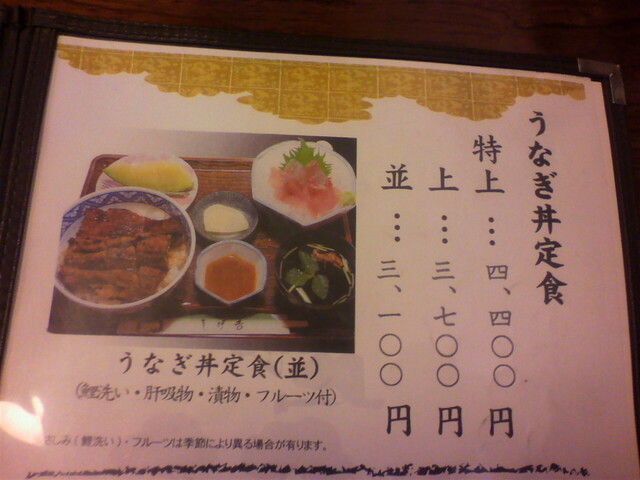 うなぎ丼定食
特上…四、四〇〇円
上…三、七〇〇円
並…三、一〇〇円
うなぎ丼定食(並)
(鯉洗い・肝吸物・漬物・フルーツ付)
しみ(鯉洗い)・フルーツは季節により異る場合が有ります。